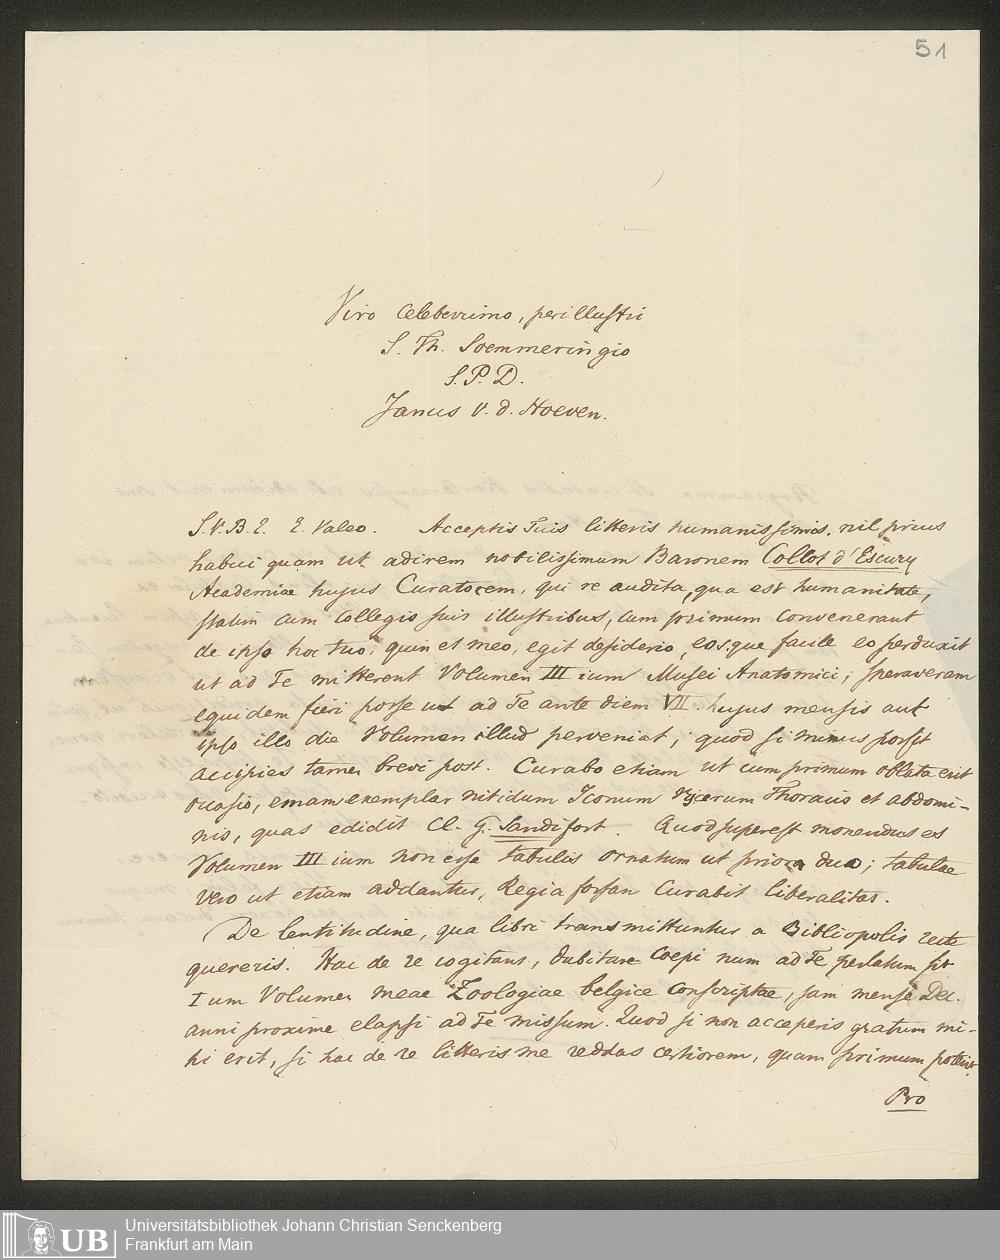 51
Viro celeberrimo, perillustri
S. Th. Soemmeringio
S.P.D.
Janus v. d. Hoeven.
S.V.B.E. E. Valeo. Acceptis Tuis litteris humanissimis, nil prius
habui quam ut adirem nobilissimum Baronem Collot d'Escury
Academiae hujus Curatorem, qui re audita, qua est humanitate,
statim cum Collegis suis illustribus, cum primum convenerant
de ipso hoc tuo, quin et meo, egit desiderio, eosque facile eo perduxit
ut ad Te mitterent Volumen III ium Musei Anatomici; speraveram
equidem fieri posse ut ad Te ante diem VII hujus mensis aut
ipso illo die Volumen illud perveniat; quod si minus possit
accipies tamen brevi post. Curabo etiam ut cum primum oblata erit
occasio, emam exemplar nitidum Iconum Viscerum Thoracis et abdomi-
nis, quas edidit Cl. G. Sandifort. Quod superest monendus es
Volumen III ium non esse tabulis ornatum ut priora duo; tabulae
vero ut etiam addantur, Regia forsan curabit liberalitas.
De lentitudine, qua libri transmittuntur a Bibliopolis recte
quereris. Hac de re cogitans, dubitare coepi num ad Te perlatum sit
I um Volumen meae Zoologiae belgice conscriptae, jam mense Dec.
anni proxime elapsi ad Te missum. Quod si non acceperis gratum mi-
hi erit, si hac de re litteris me reddas certiorem, quam primum poteris.
Pro
UB
Universitätsbibliothek Johann Christian Senckenberg
Frankfurt am Main